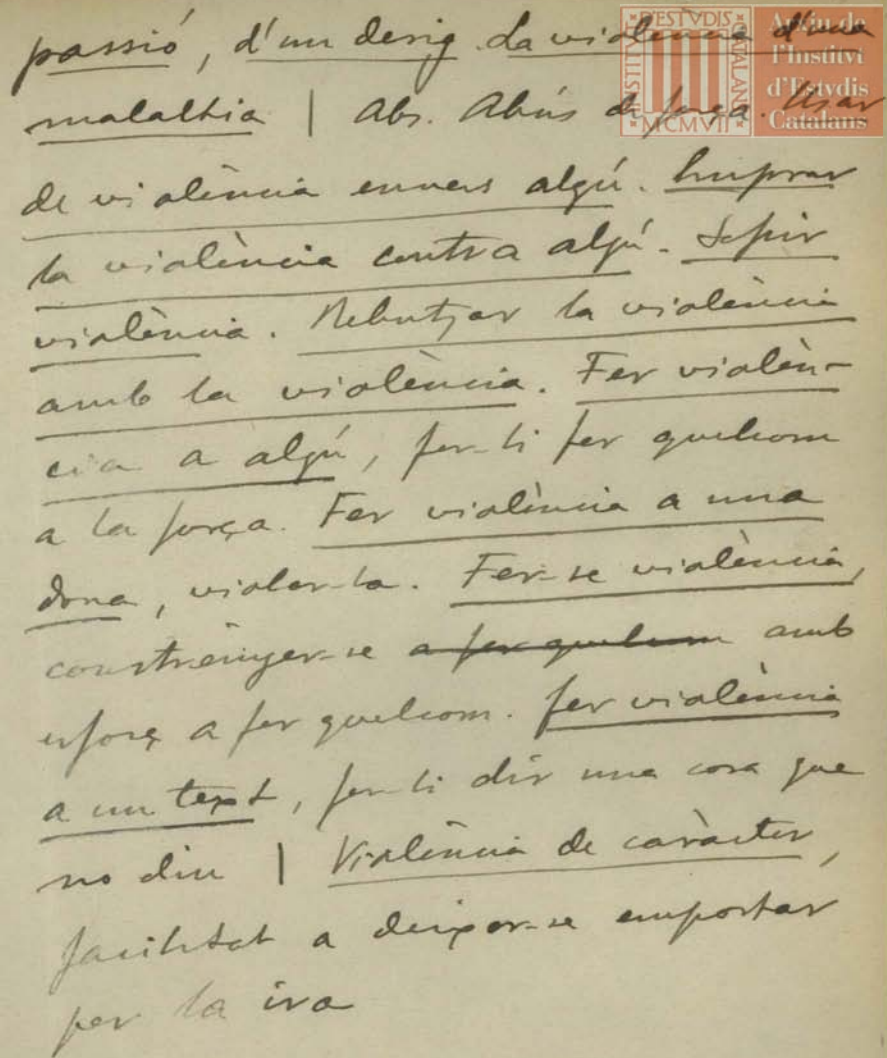 passió, d'un desig. La violència d'una
malaltia | Abs. Abús de força. Usar
de violència envers algú. Emprar
la violència contra algú. Sofrir
violència. Rebutjar la violència
amb la violència. Fer violèn-
cia a algú, fer-li fer quelcom
a la força. Fer violència a una
dona, violar-la. Fer-se violència,
constrènyer-se a fer quelcom amb
esforç a fer quelcom. Fer violència
a un text, fer-li dir una cosa que
no diu | Violència de caràcter,
facilitat a deixar-se emportar
per la ira
INSTITVT D'ESTVDIS CATALANS
MCMVII
Arxiu de
l'Institvt
d'Estvdis
Catalans